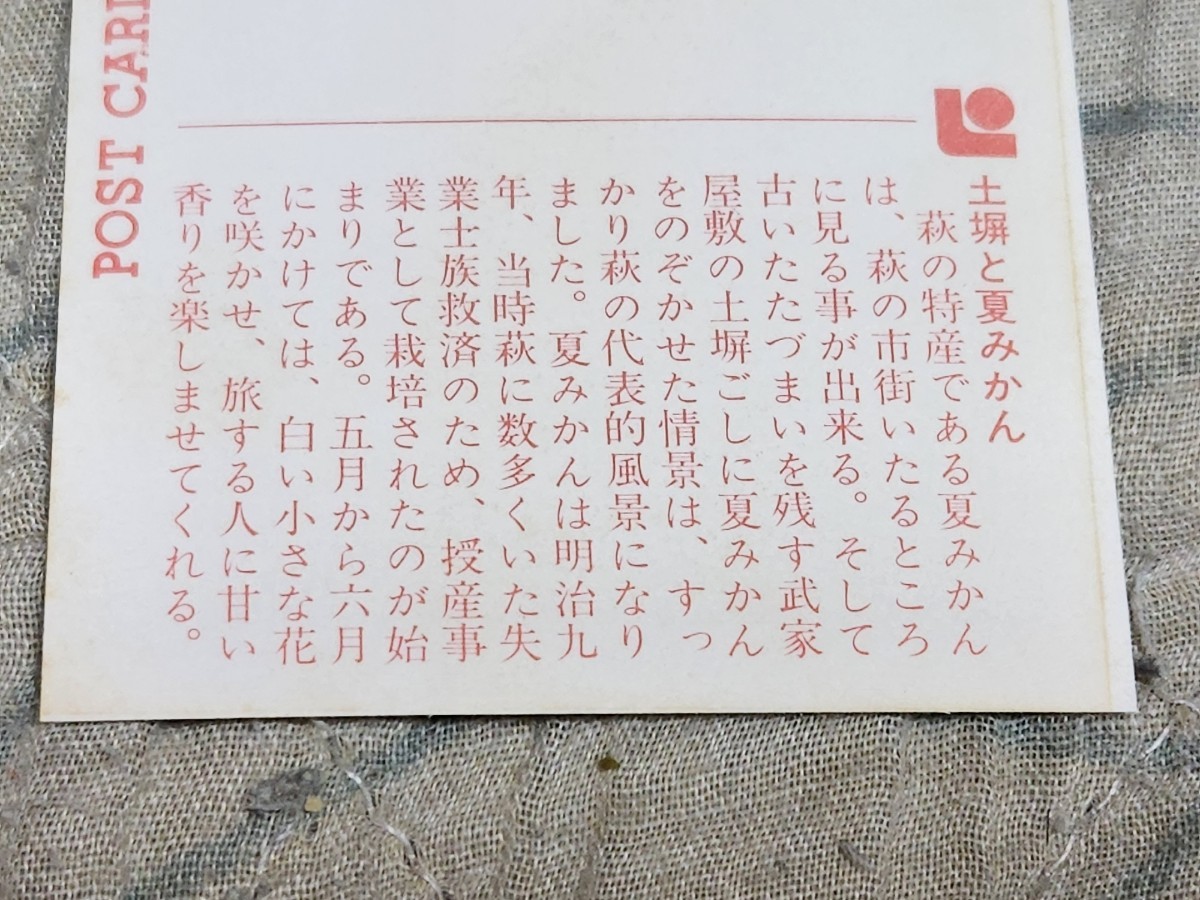 土塀と夏みかん
萩の特産である夏みかん
は、萩の市街いたるところ
に見る事が出来る。そして
古いたたづまいを残す武家
屋敷の土塀ごしに夏みかん
をのぞかせた情景は、すっ
かり萩の代表的風景になり
ました。夏みかんは明治九
年、当時萩に数多くいた失
業士族救済のため、授産事
業として栽培されたのが始
まりである。五月から六月
にかけては、白い小さな花
を咲かせ、旅する人に甘い
香りを楽しませてくれる。
POST CARD